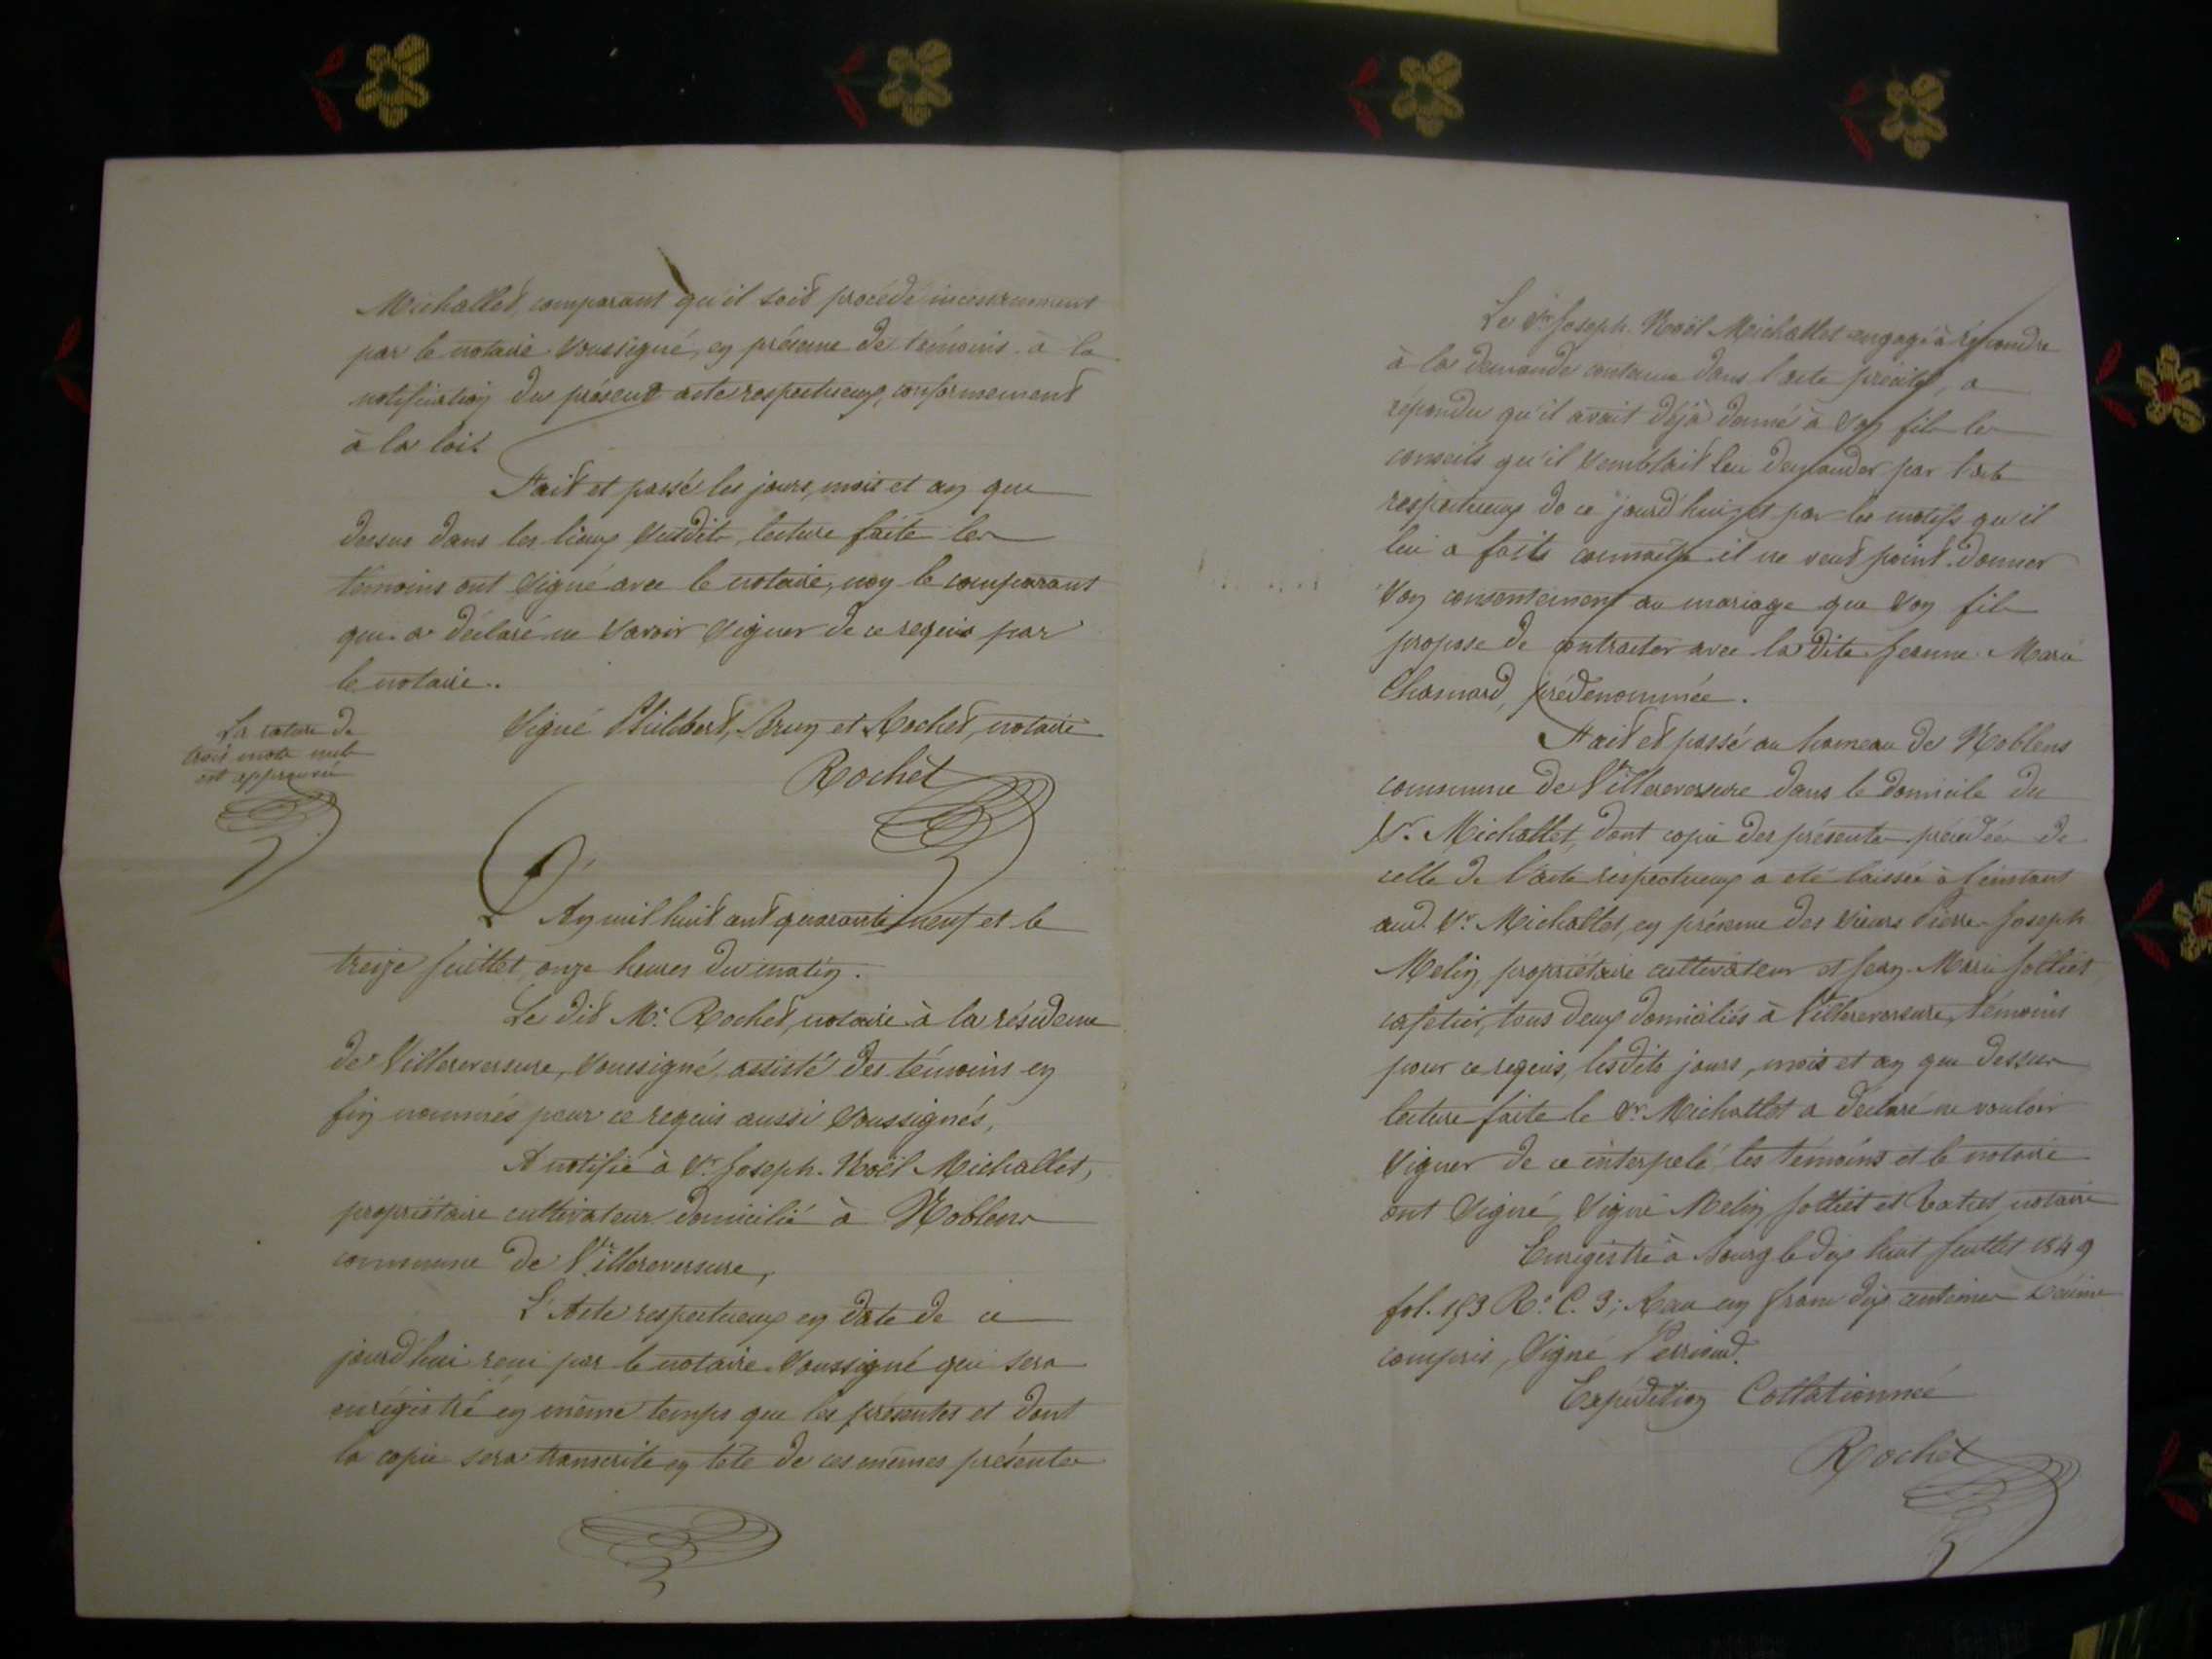 Michallet, comparant qu'il soit procédé incessamment
par le notaire soussigné, en présence de témoins à la
notification du présent acte respectueux, conformément
à la loi.
Fait et passé les jours, mois et an que
dessus dans les lieux susdits, lecture faite les
témoins ont signé avec le notaire, non le comparant
qui a déclaré ne savoir signer de ce requis par
le notaire.
Signé Philibert, Brun et Rochet, notaire
La rature de
trois mots nuls
est approuvée
Rochet
L'An mil huit cent quarante neuf et le
treize juillet onze heures du matin.
Le dit Me. Rochet, notaire à la résidence
de Villereversure, soussigné, assisté des témoins en
fin nommés pour ce requis aussi soussignés,
A notifié à Sr. Joseph-Noël Michallet,
propriétaire cultivateur domicilié à Noblens
commune de Villereversure,
L'Acte respectueux en date de ce
jourd'hui reçu par le notaire soussigné qui sera
enrégistré en même temps que les présentes et dont
la copie sera transcrite en tête de ces mêmes présentes
Le Sr Joseph-Noël Michallet engagé à répondre
à la demande contenue dans l'acte précité, a
répondu qu'il avait déjà donné à son fils les
conseils qu'il semblait lui demander par l'acte
respectueux de ce jourd'hui et par les motifs qu'il
lui a faits connaître il ne veut point donner
son consentement au mariage que son fils
propose de contracter avec la dite Jeanne-Marie
Chanard, prédenommée.
Fait et passé au hameau de Noblens
commune de Villereversure dans le domicile du
Sr. Michallet, dont copie des présentes précédée de
celle de l'acte respectueux a été laissée à l'instant
aud. Sr. Michallet, en présence des sieurs Pierre-Joseph
Melin, propriétaire cultivateur et Jean-Marie Jolliet
cafetier, tous deux domiciliés à Villereversure, témoins
pour ce requis, lesdits jours, mois et an que dessus
lecture faite le Sr. Michallet a déclaré ne vouloir
signer de ce interpelé, les témoins et le notaire
ont signé, Signé Melin, Jolliet et Rochet notaire
Enregistré à Bourg le dix huit Juillet 1849
fol. 193 Ro. C. 3; Reçu un franc dix centimes Décime
compris, Signé
Expédition Collationnée
Rochet